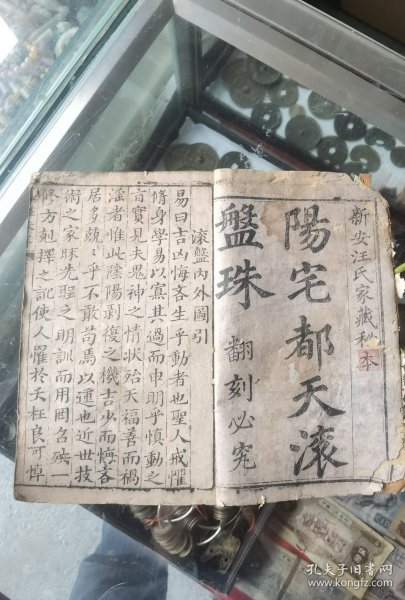 新安汪氏家藏秘本
陽宅都天滾
盤珠
翻刻必究
滾盤內外圖引
易曰吉凶悔吝生乎動者也聖人戒懼
脩身學易以寡其過而申明乎慎動之
旨實見夫鬼神之情狀殆天福善而禍
淫者惟此陰陽剥復之機吉少而悔吝
居多兢兢乎不敢苟焉以運也近世技
術之家昧先聖之明訓而用罔召殃一
修方剋擇之訛使人罹於夭枉良可悼
孔夫子旧书网
www.kongfz.com